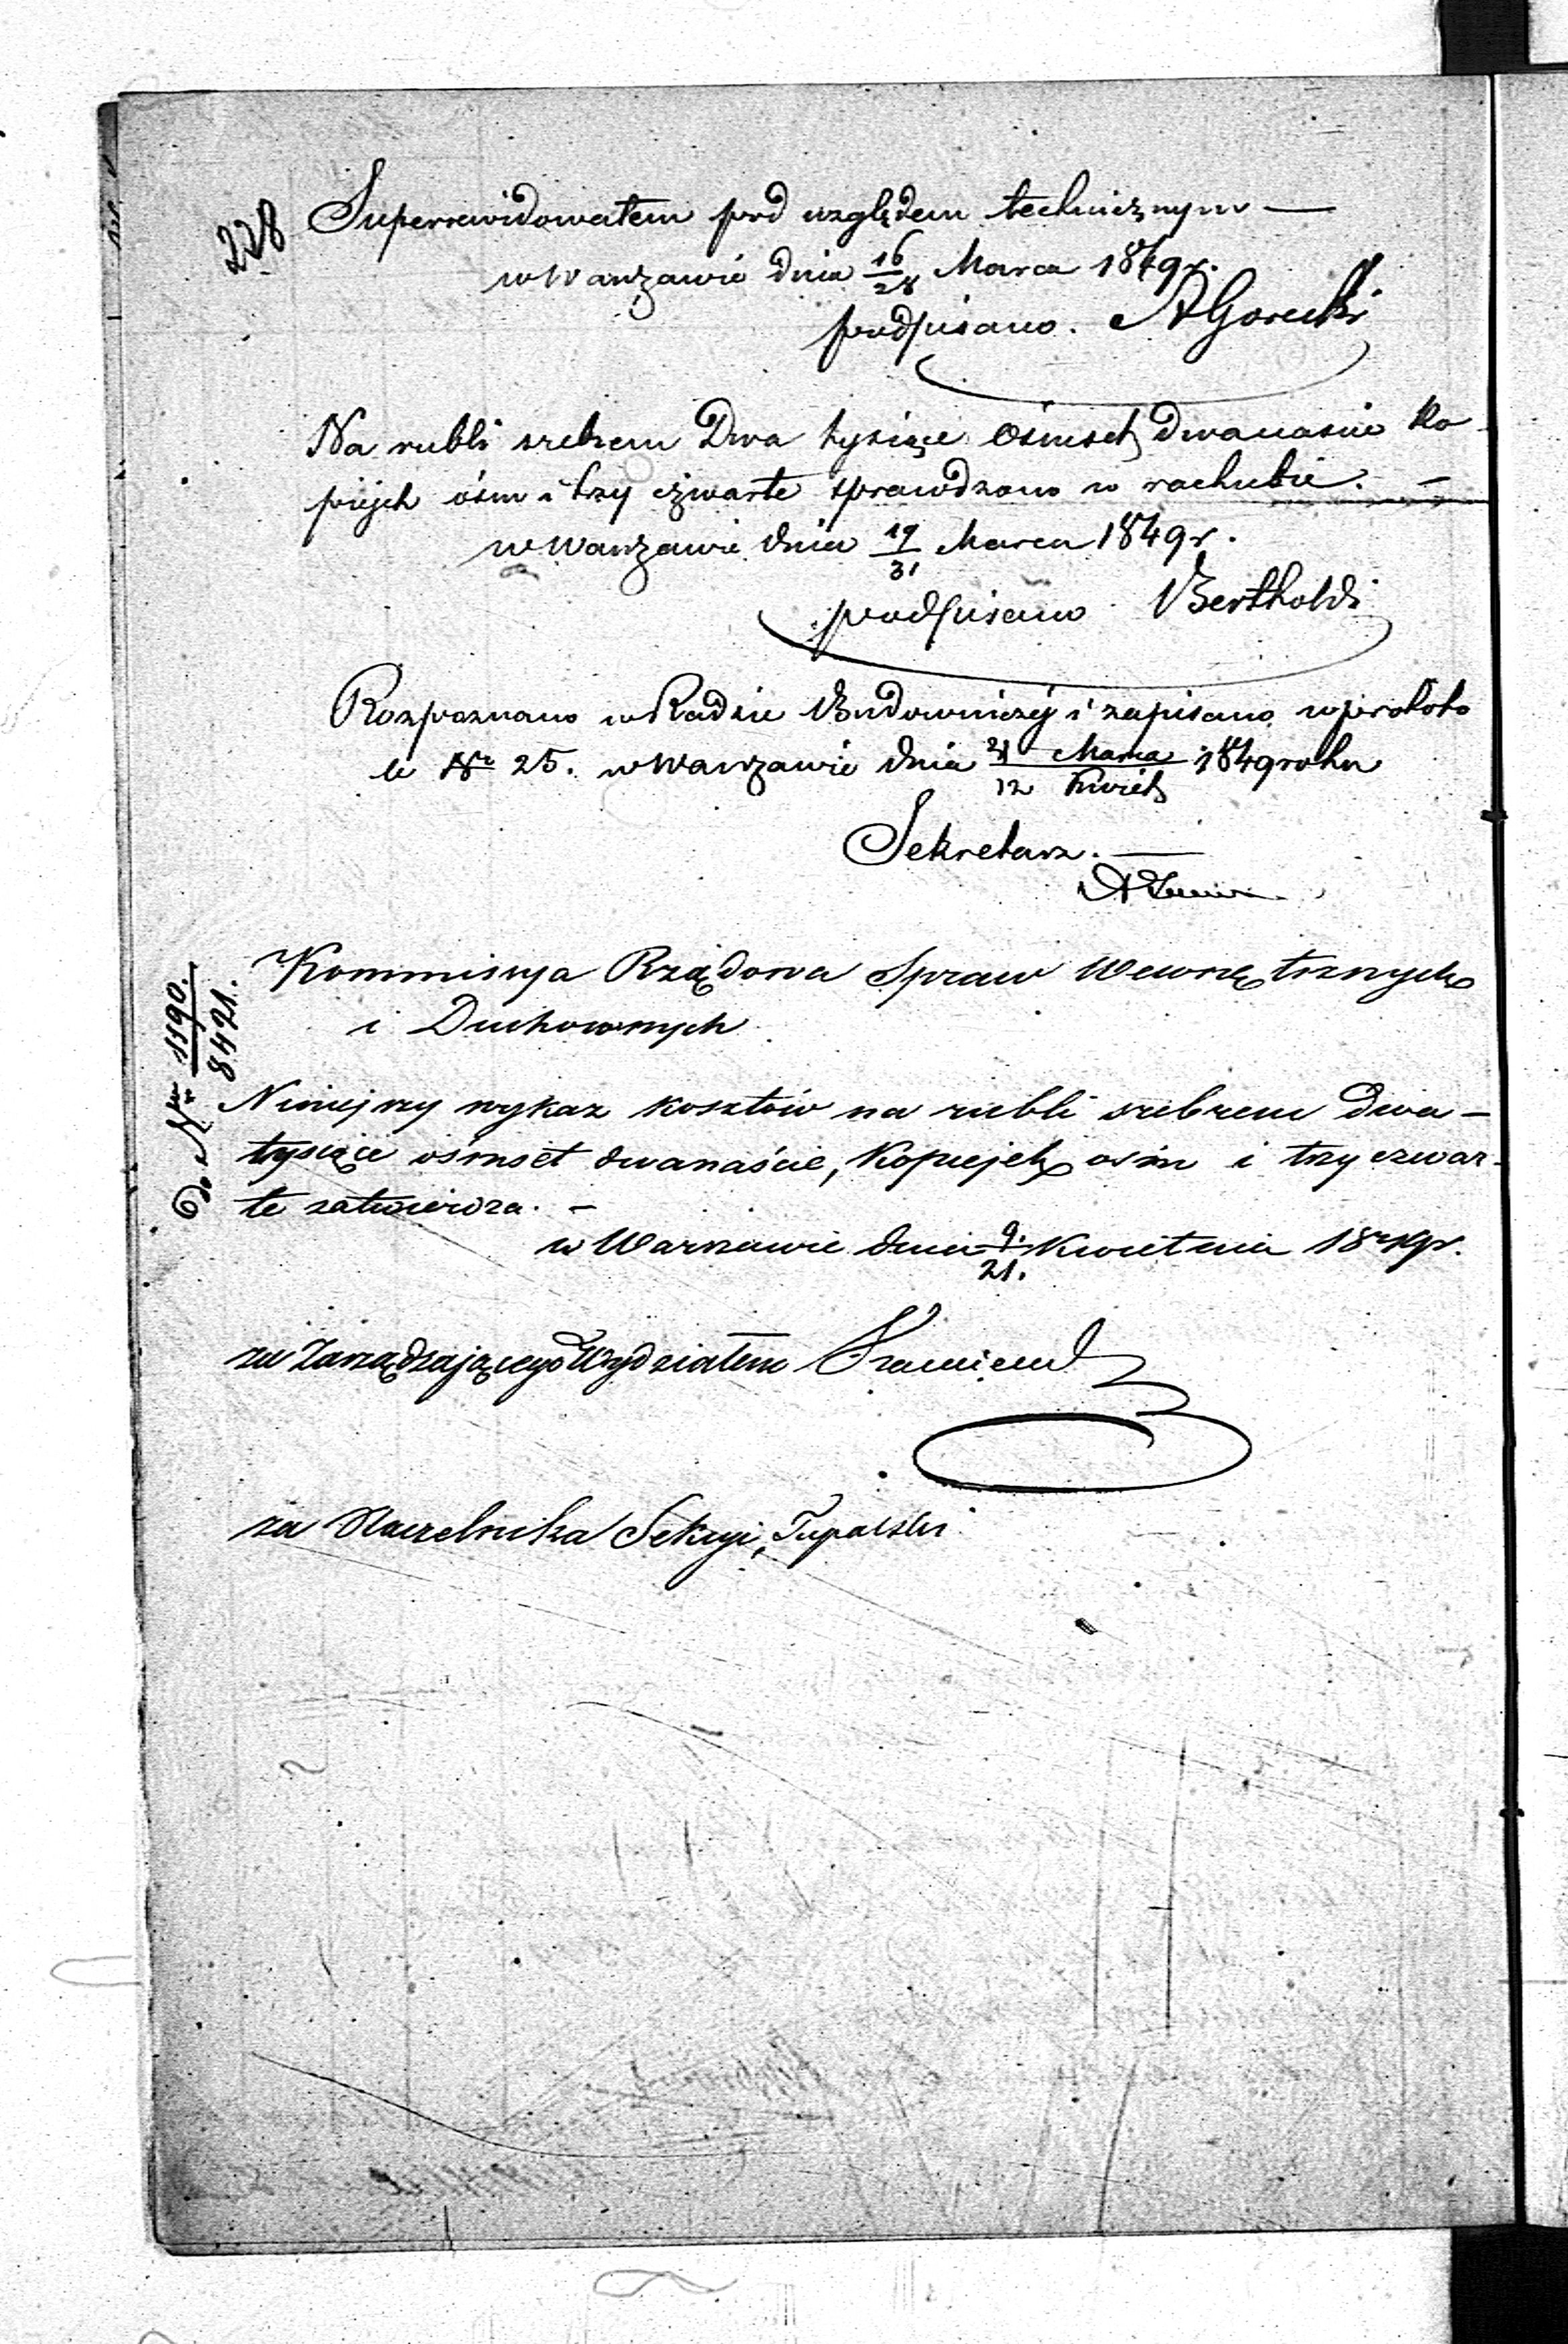 228
Superrewidowałem pod względem technicznym —
w Warszawie dnia 16/28 Marca 1849 r.
podpisano. A Gorecki
Na rubli srebrem Dwa tysiące Ośmset dwanaście Ko-
piejek ośm i trzy czwarte sprawdzono w rachubie. —
w Warszawie dnia 19/31 Marca 1849 r.
podpisano Bertholdi
Rozpoznano w Radzie Budowniczej i zapisano w protoko
le Nr 25. w Warszawie dnia 31 Marca/12 Kwiet 1849 roku
Sekretarz. —
Do Nru 1190./8421.
Kommissya Rządowa Spraw Wewnętrznych
i Duchownych
Niniejszy wykaz kosztów na rubli srebrem dwa —
tysiące ośmset dwanaście, Kopiejek ośm i trzy czwar-
te zatwierdza. —
w Warszawie dnia 9./21. Kwietnia 1849 r.
za Zarządzającego Wydziałem
za Naczelnika Sekcyi, Tupalski